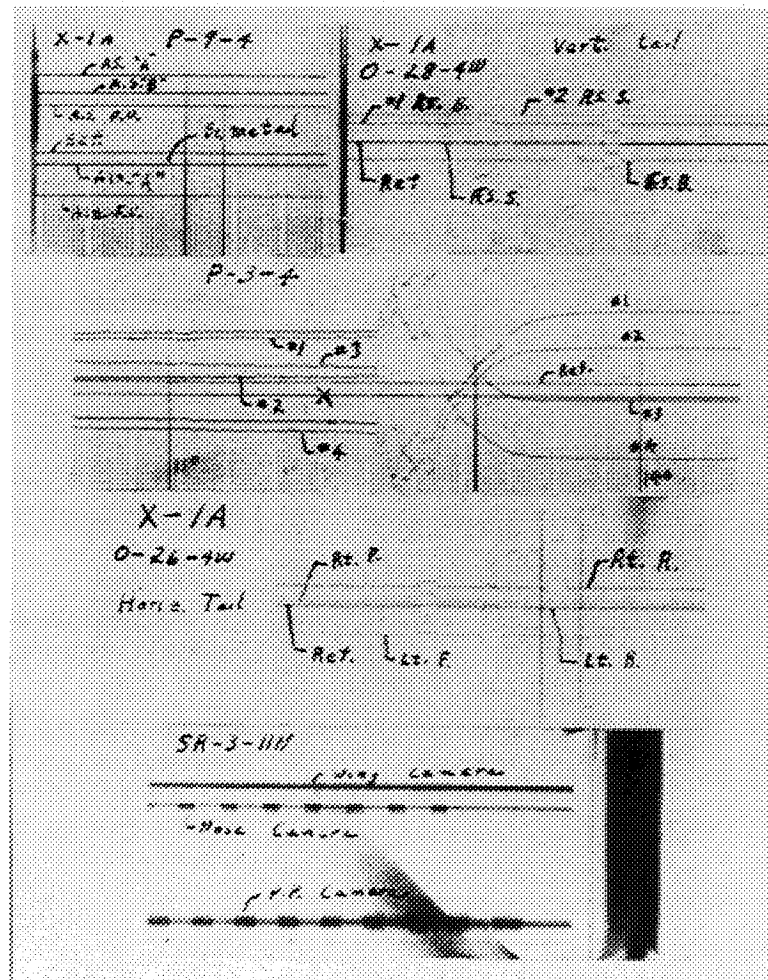 X-1A P-9-4
A.S. "A"
A.S. "B"
Bimetal
X-1A Vert. tail
O-28-4W
#2 Rs. S.
Ref
Rs. S.
P-3-4
#1
#3
#2 X
#4
110
#1
#2
Ref.
#3
#4
100
X-1A
O-26-4W
Horiz. Tail
Rt. F.
Rt. R.
Ref.
Lt. F.
Lt. R.
SR-3-11W
Wing Camera
Nose Camera
V.P. Camera